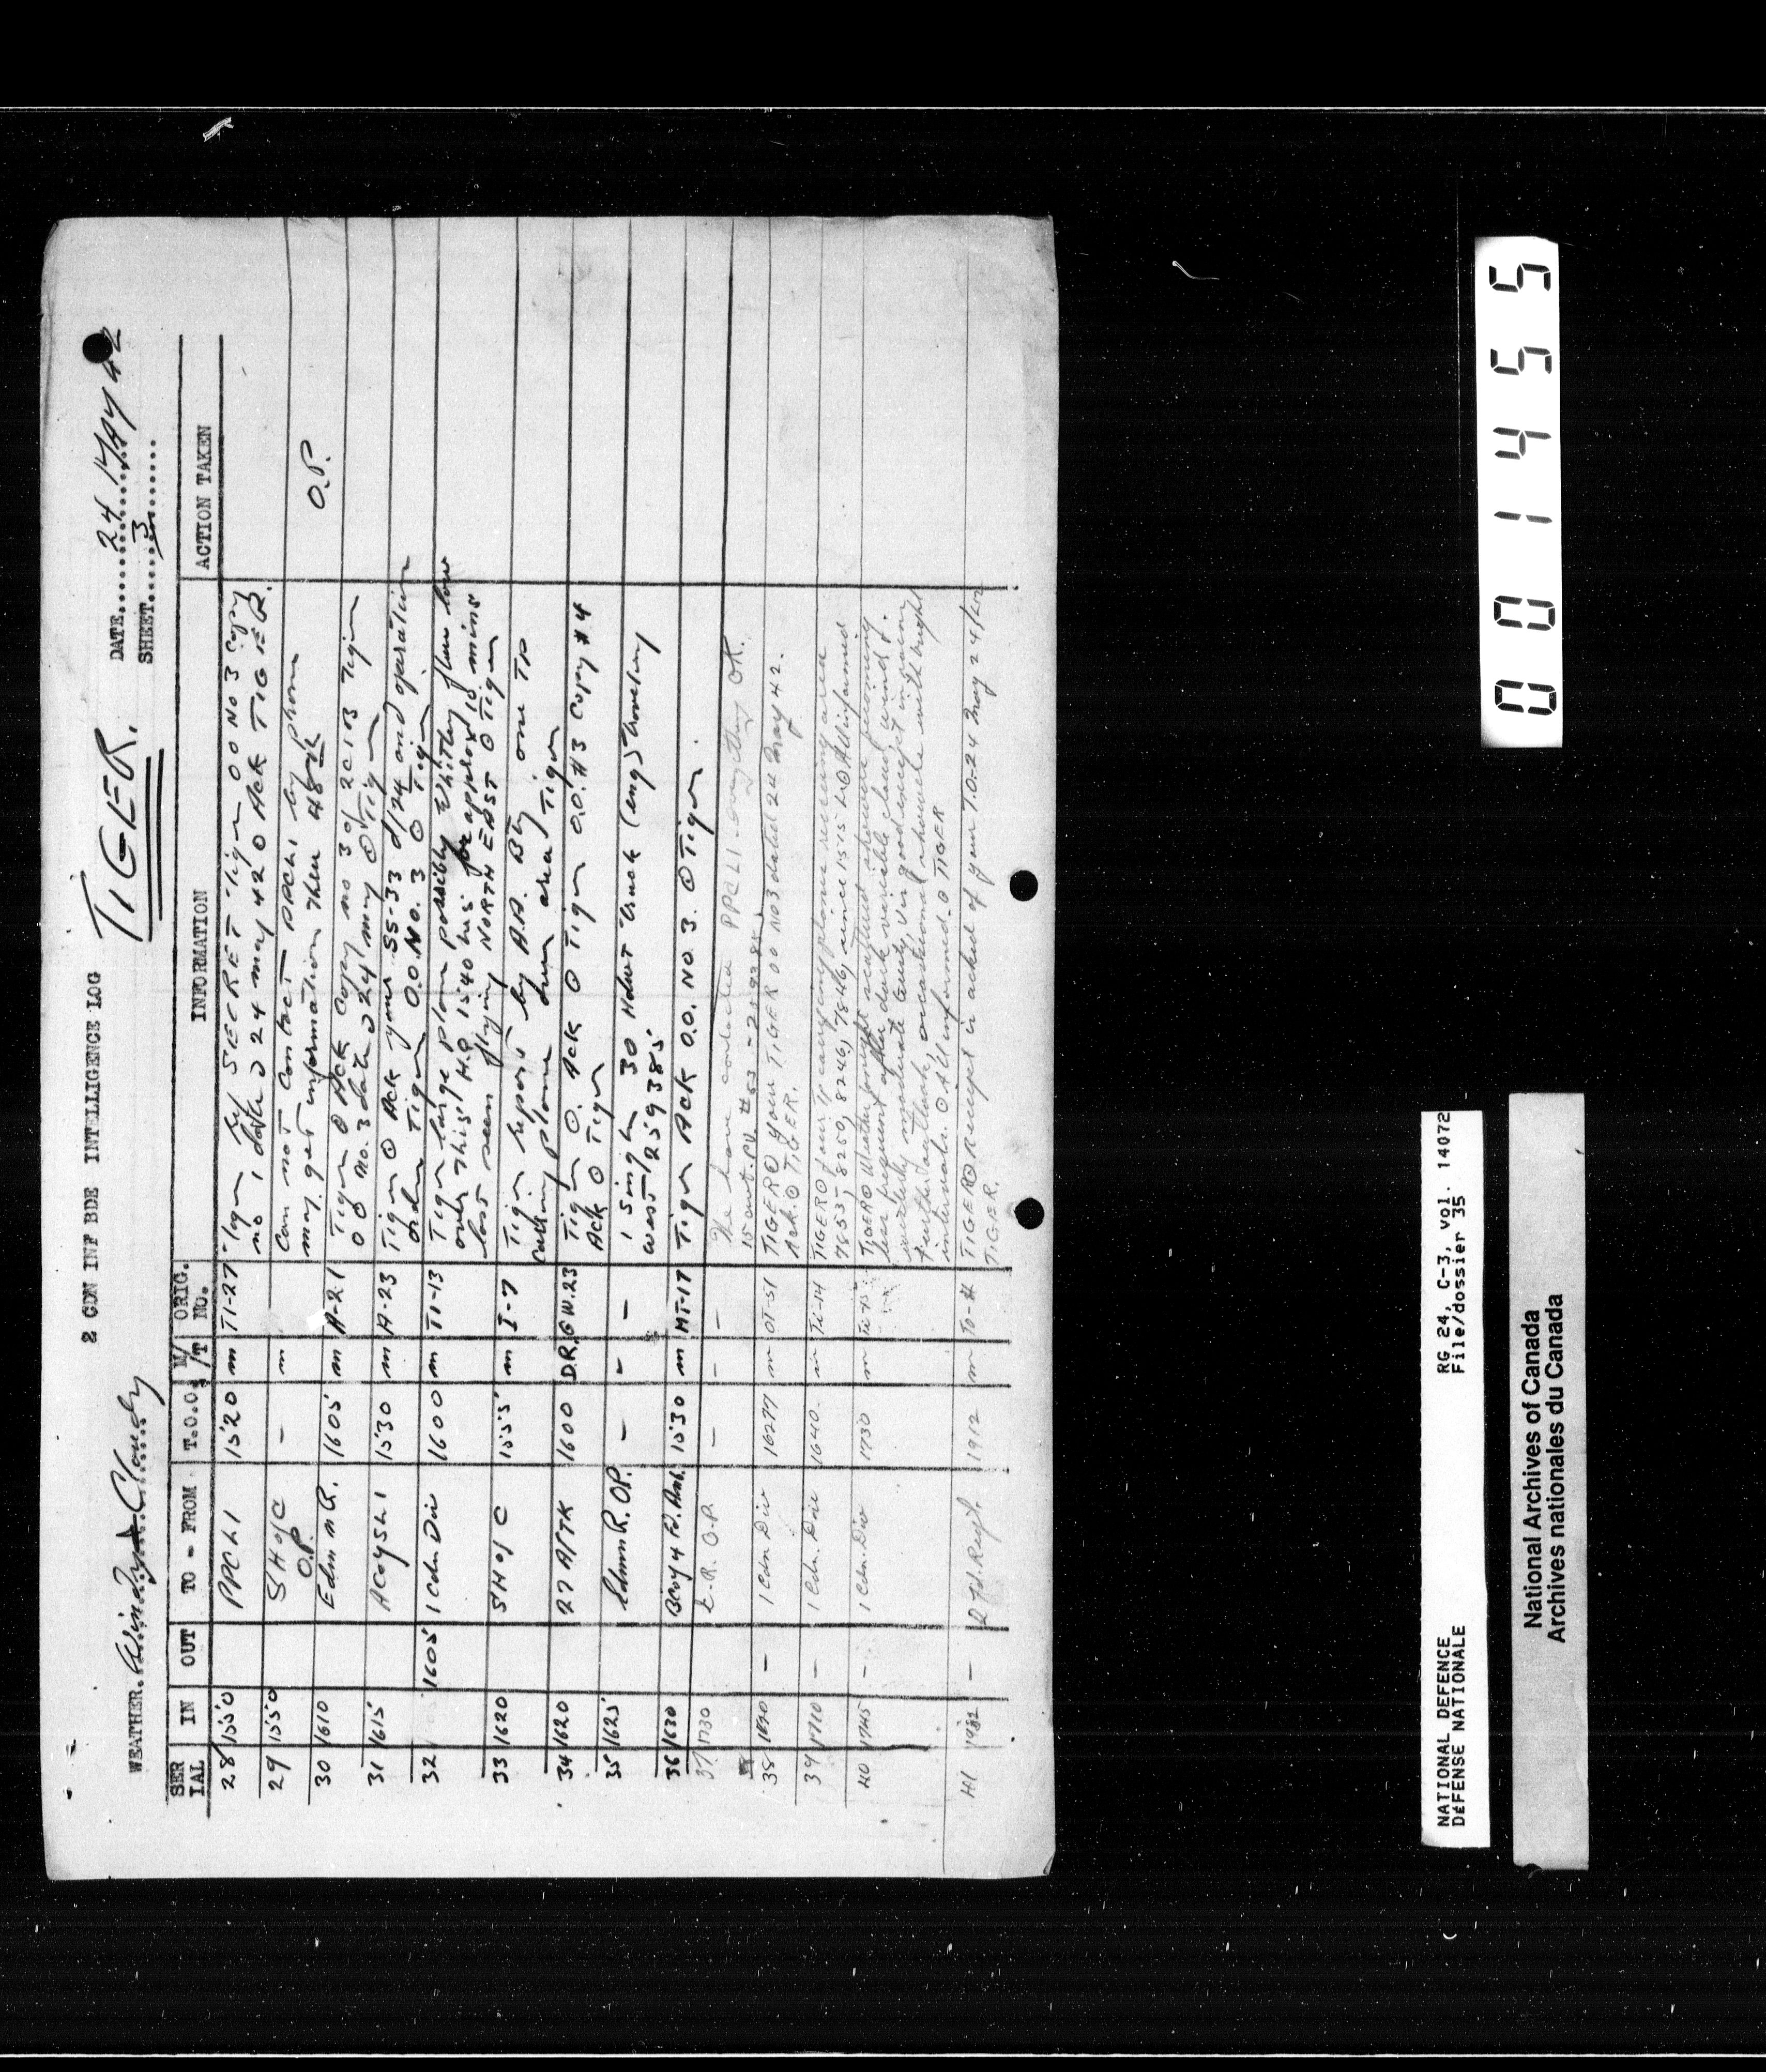 2 CDN INF BDE INTELLIGENCE LOG
TIGER.
DATE 24 May 42
SHEET 3
WEATHER. Windy & Cloudy
SERIAL IN OUT TO - FROM T.O.O. M/T ORIG. NO. INFORMATION ACTION TAKEN
28 1550 PPCLI 1520 m TI-27 Tiger SECRET Tiger OO No 3 Copy
no 1 dated 24 may 42 O Ack TIGER.
29 1550 SH of C O.P. - m Can not contact PPCLI by phone
may get information then O.P.
30 1610 Edm R. 1605 m A-21 Tiger O Ack Copy no 3 of 2CIB Tiger
OO No. 3 dated 24 may O Tiger
31 1615 A Coy SLI 1530 m A-23 Tiger O Ack your SS-33 d/24 and operation
order Tiger O.O. NO. 3 O Tiger
32 1605 1 Cdn Div 1600 m TI-13 Tiger large plane possibly Whitley flew low
over this H.Q 1540 hrs for approx 10 mins
last seen flying NORTH EAST O Tiger
33 1620 SH of C 1555 m I-7 Tiger report by A.A. Bty one TP
carrying plane over area Tiger
34 1620 27 A/TK 1600 D.R. GW.23 Tiger O. Ack O Tiger O.O. #3 Copy #4
Ack O Tiger
35 1625 Edmn R. OP. - - - 1 Single 30 Hdwt truck (eng) traveling
west / 259385
36 1630 B Coy 4 Fd. Amb. 1530 m MT-17 Tiger Ack O.O. NO. 3. O Tiger.
37 1730 E.R. O.P. - - - We have contacted PPCLI. everything OK.
38 - 1 Cdn Div m OT-51 TIGER O your TIGER OO NO3 dated 24 May 42.
Ack. O TIGER.
39 1710 - 1 Cdn. Div 1640 m TI-14 TIGER O four carrying planes area
7653, 8250, 8246, 7846, since 1515 O All informed
40 1745 - 1 Cdn. Div 1730 m TIGER O Weather tonight scattered showers becoming
less frequent after dark variable cloud, wind
westerly moderate vis good except in rain
further outlook, occasional showers with bright
intervals. O All informed O TIGER
41 - 2 Fd. Regt. 1912 m TO-# TIGER O Receipt is acked of your T.O.24 May 24/42
TIGER.
0 0 1 4 5 5
NATIONAL DEFENCE RG 24, C-3, vol. 14072
DÉFENSE NATIONALE File/dossier 35
National Archives of Canada
Archives nationales du Canada